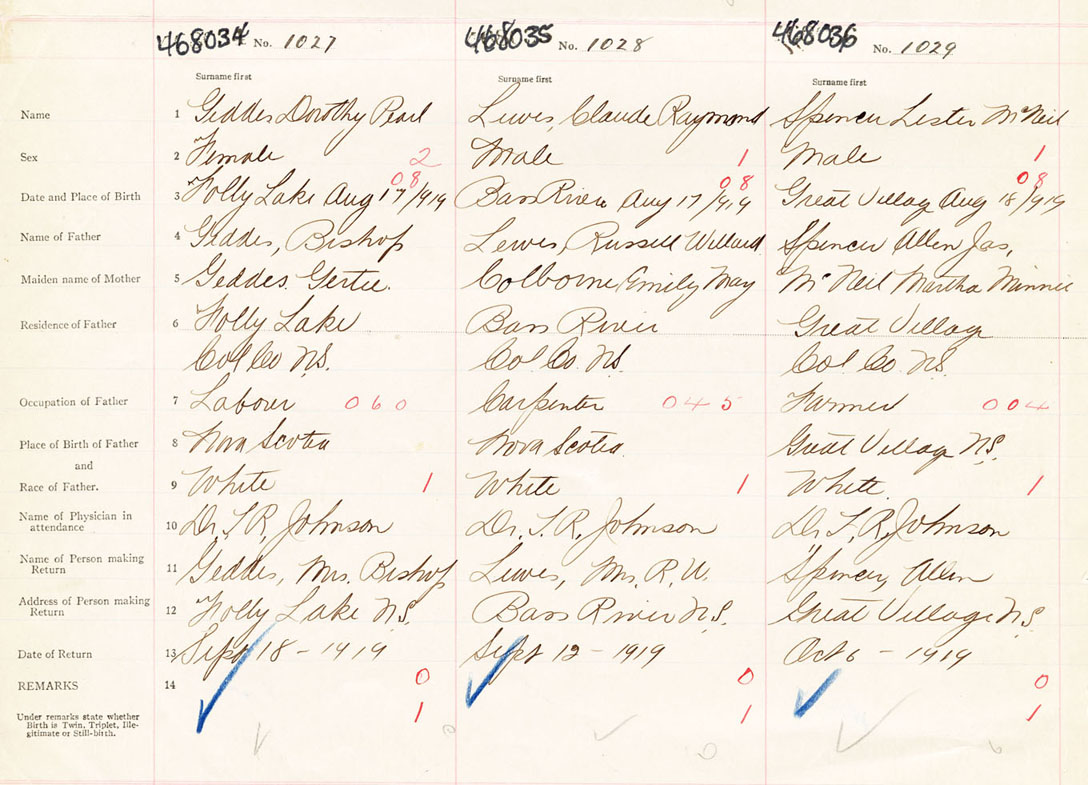 468034 No. 1027 468035 No. 1028 468036 No. 1029
Surname first Surname first Surname first
Name 1 Geddes Dorothy Pearl Lewis, Claude Raymond Spencer Lester McNeil
Sex 2 Female 2 Male 1 Male 1
08 08 08
Date and Place of Birth 3 Folly Lake Aug 17/919 Bass River Aug 17/919 Great Village Aug 18/919
Name of Father 4 Geddes, Bishop Lewis, Russell Willard Spencer Allen Jas,
Maiden name of Mother 5 Geddes, Gertie. Colborne, Emily May McNeil Martha Minnie
Residence of Father 6 Folly Lake Bass River Great Village
Col Co N.S. Col. Co. N.S. Col. Co N.S.
Occupation of Father 7 Labour 060 Carpenter 045 Farmer 004
Place of Birth of Father 8 Nova Scotia Nova Scotia. Great Village N.S.
and
Race of Father. 9 White 1 White 1 White. 1
Name of Physician in
attendance 10 Dr. T. R. Johnson Dr. T. R. Johnson Dr. T. R. Johnson
Name of Person making
Return 11 Geddes, Mrs. Bishop Lewis, Mrs. R. W. Spencer, Allen
Address of Person making
Return 12 Folly Lake N.S. Bass River N.S. Great Village N.S.
Date of Return 13 Sept 18 - 1919 Sept 12 - 1919 Oct 6 - 1919
REMARKS 14 0 0 0
Under remarks state whether
Birth is Twin, Triplet, Ille-
gitimate or Still-birth. 1 1 1